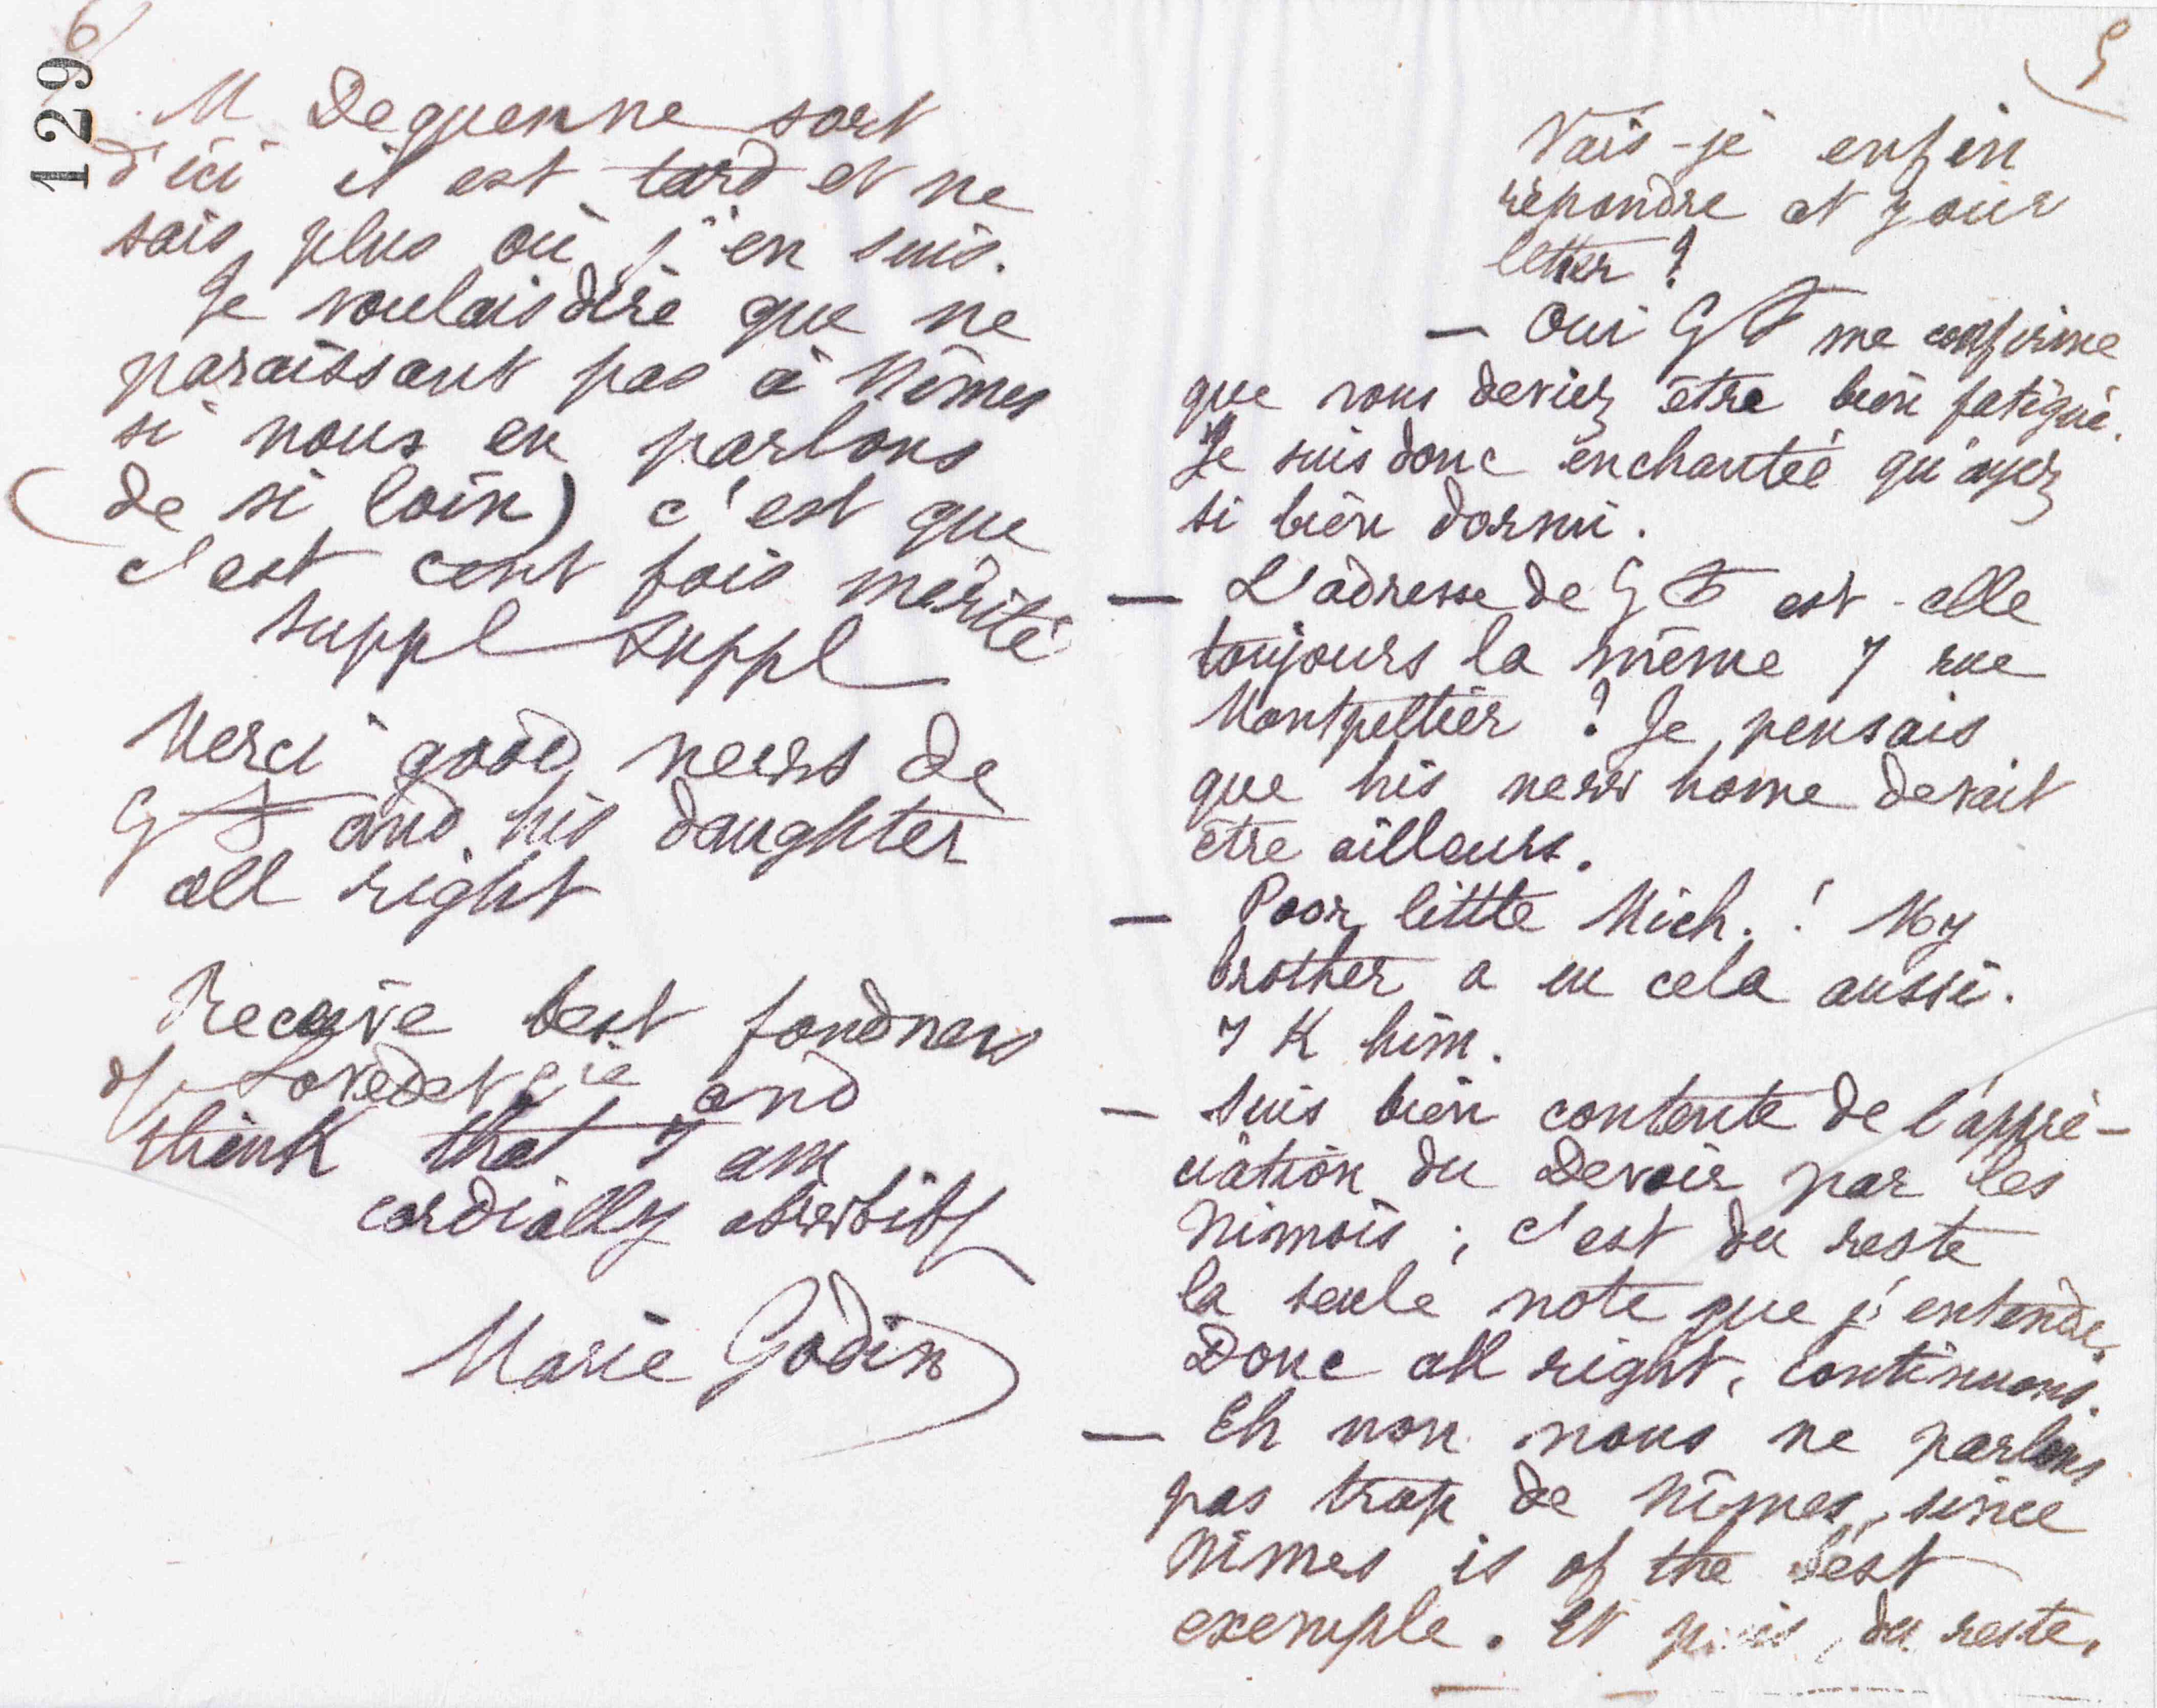 5
Vais-je enfin
répondre at your
letter ?
— Oui G me confirme
que vous deviez être bien fatigué.
Je suis donc enchantée qu'ayez
si bien dormi.
— L'adresse de G est-elle
toujours la même 7 rue
Montpellier ? Je pensais
que his new home devait
être ailleurs.
— Poor little Mich. ! My
brother a eu cela aussi.
I K him.
— Suis bien contente de l'appré-
ciation du Devoir par les
Nimois ; c'est du reste
la seule note que j'entende.
Donc all right, continuons.
— Eh non nous ne parlons
pas trop de Nîmes, since
Nimes is of the best
exemple. Et puis, du reste,
6
129
M Dequenne sort
d'ici il est tard et ne
sais plus où j'en suis.
Je voulais dire que ne
paraissant pas à Nîmes
si nous en parlons
(de si loin) c'est que
c'est cent fois mérité
suppl suppl
Merci good news de
G and his daughter
all right
Receive best fondness
of and
think that I am
cordially
Marie Godin